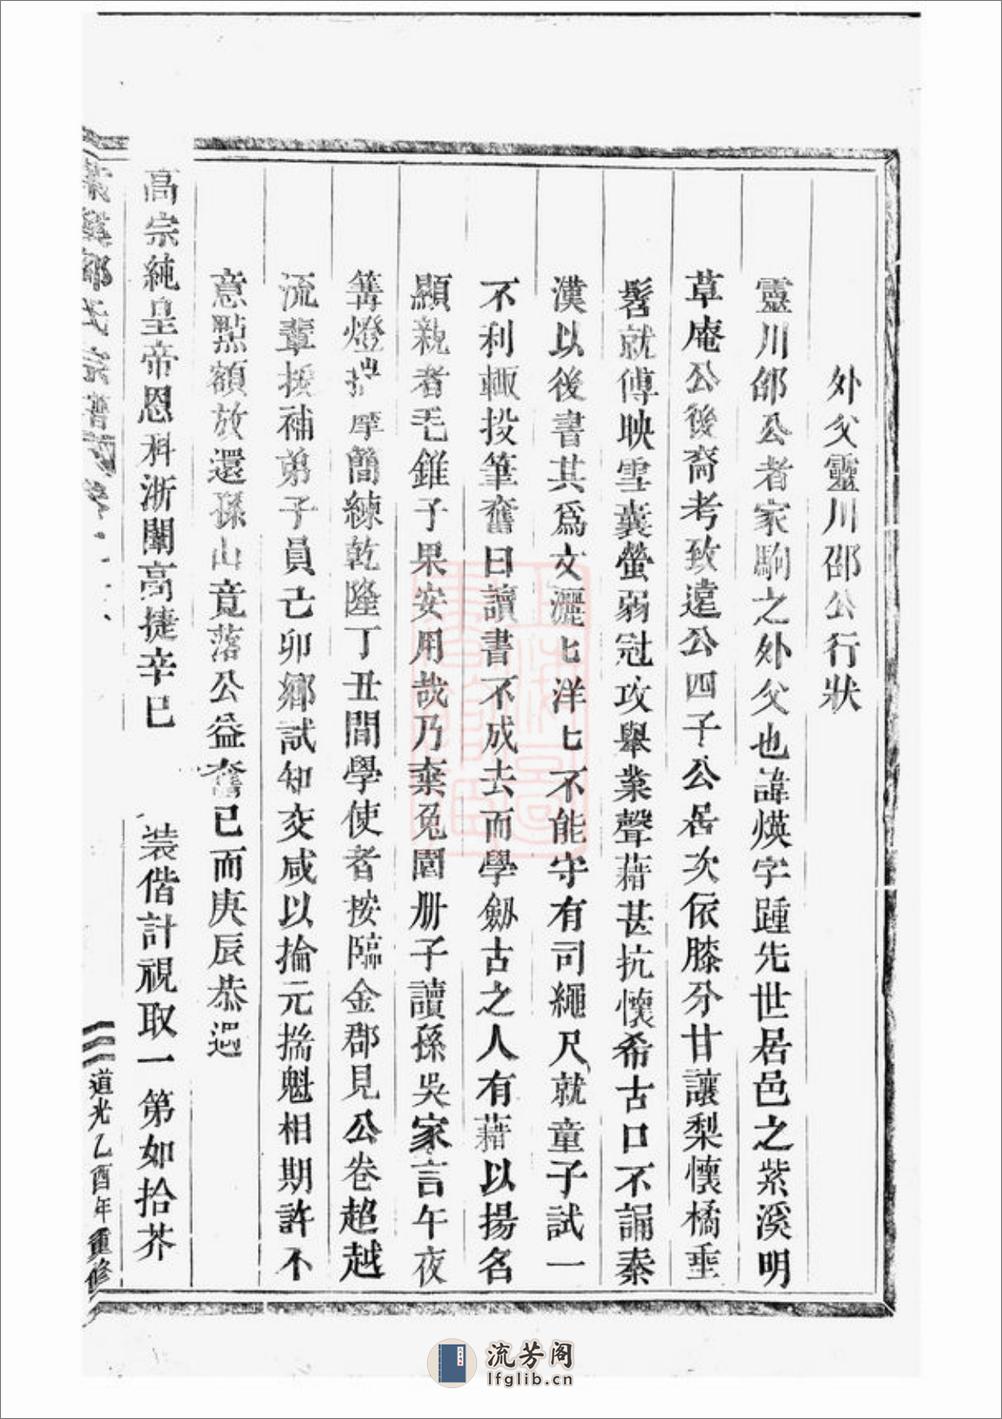 外父靈川邵公行狀
靈川邵公者家駒之外父也諱煐字踵先世居邑之紫溪明
草庵公後裔考致遠公四子公居次依膝分甘讓梨懷橘垂
髫就傅映雪囊螢弱冠攻舉業聲藉甚抗懷希古口不誦秦
漢以後書其爲文灑匕洋匕不能守有司繩尺就童子試一
不利輙投筆奮曰讀書不成去而學劔古之人有藉以揚名
顯親者毛錐子果安用哉乃棄兎園册子讀孫吳家言午夜
篝燈摩簡練乾隆丁丑間學使者按臨金郡見公卷超越
流輩拔補弟子員己卯鄉試知交咸以掄元揣魁相期許不
意點額放還孫山竟落公益奮已而庚辰恭遇
高宗純皇帝恩科浙闈高捷辛巳 装偕計視取一第如拾芥
紫溪邵氏宗譜
道光乙酉年重修
流芳阁
lfglib.cn